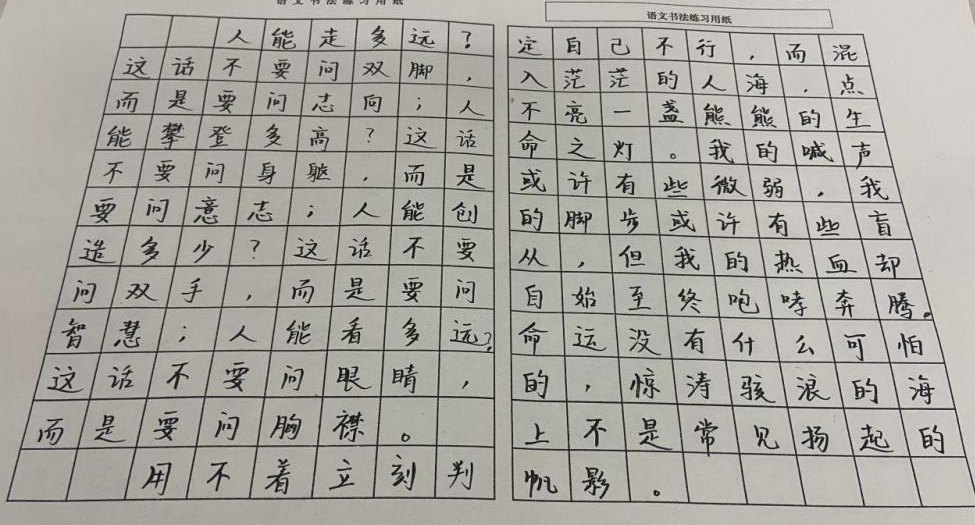 语文书法练习用纸
人能走多远？
这话不要问双脚，
而是要问志向；人
能攀登多高？这话
不要问身躯，而是
要问意志；人能创
造多少？这话不要
问双手，而是要问
智慧；人能看多远？
这话不要问眼睛，
而是要问胸襟。
用不着立刻判
语文书法练习用纸
定自己不行，而混
入茫茫的人海，点
不亮一盏熊熊的生
命之灯。我的喊声
或许有些微弱，我
的脚步或许有些盲
从，但我的热血却
自始至终咆哮奔腾。
命运没有什么可怕
的，惊涛骇浪的海
上不是常见扬起的
帆影。